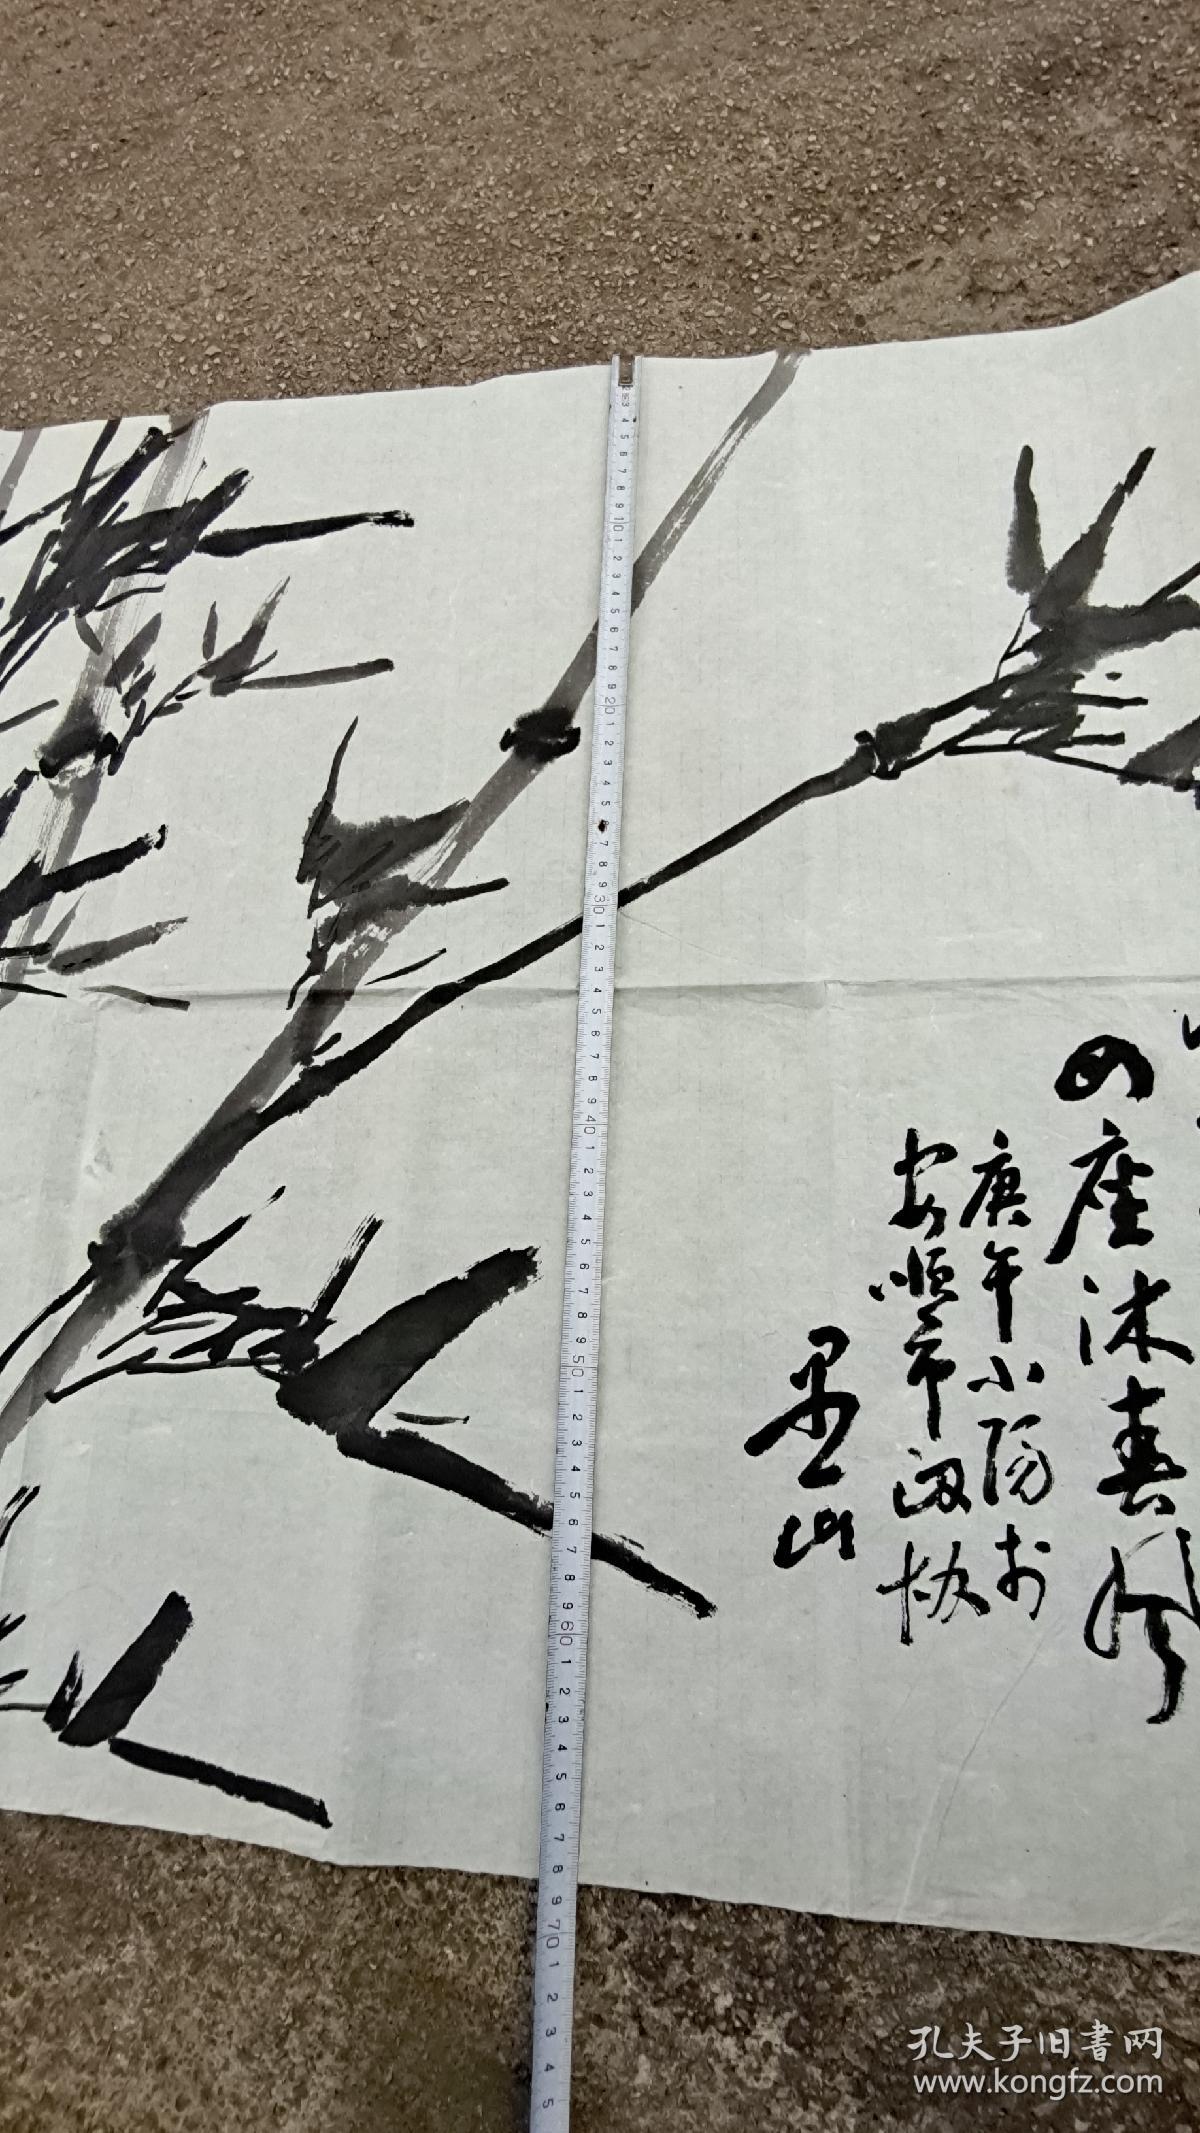 如座沐春风
庚午小阳于
安顺市政协
墨山
孔夫子旧書网
www.kongfz.com